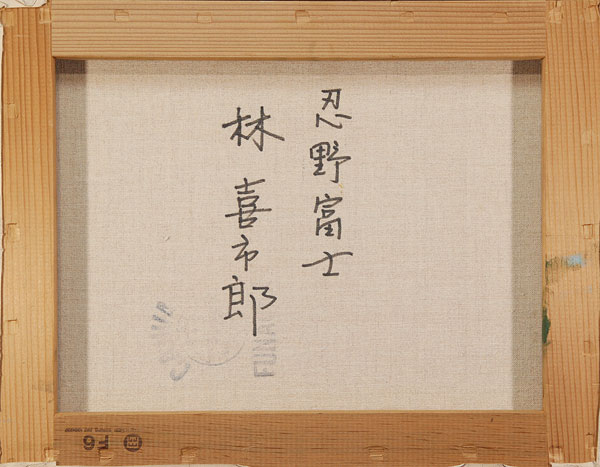 忍野富士
林喜市郎
FUNA
F6